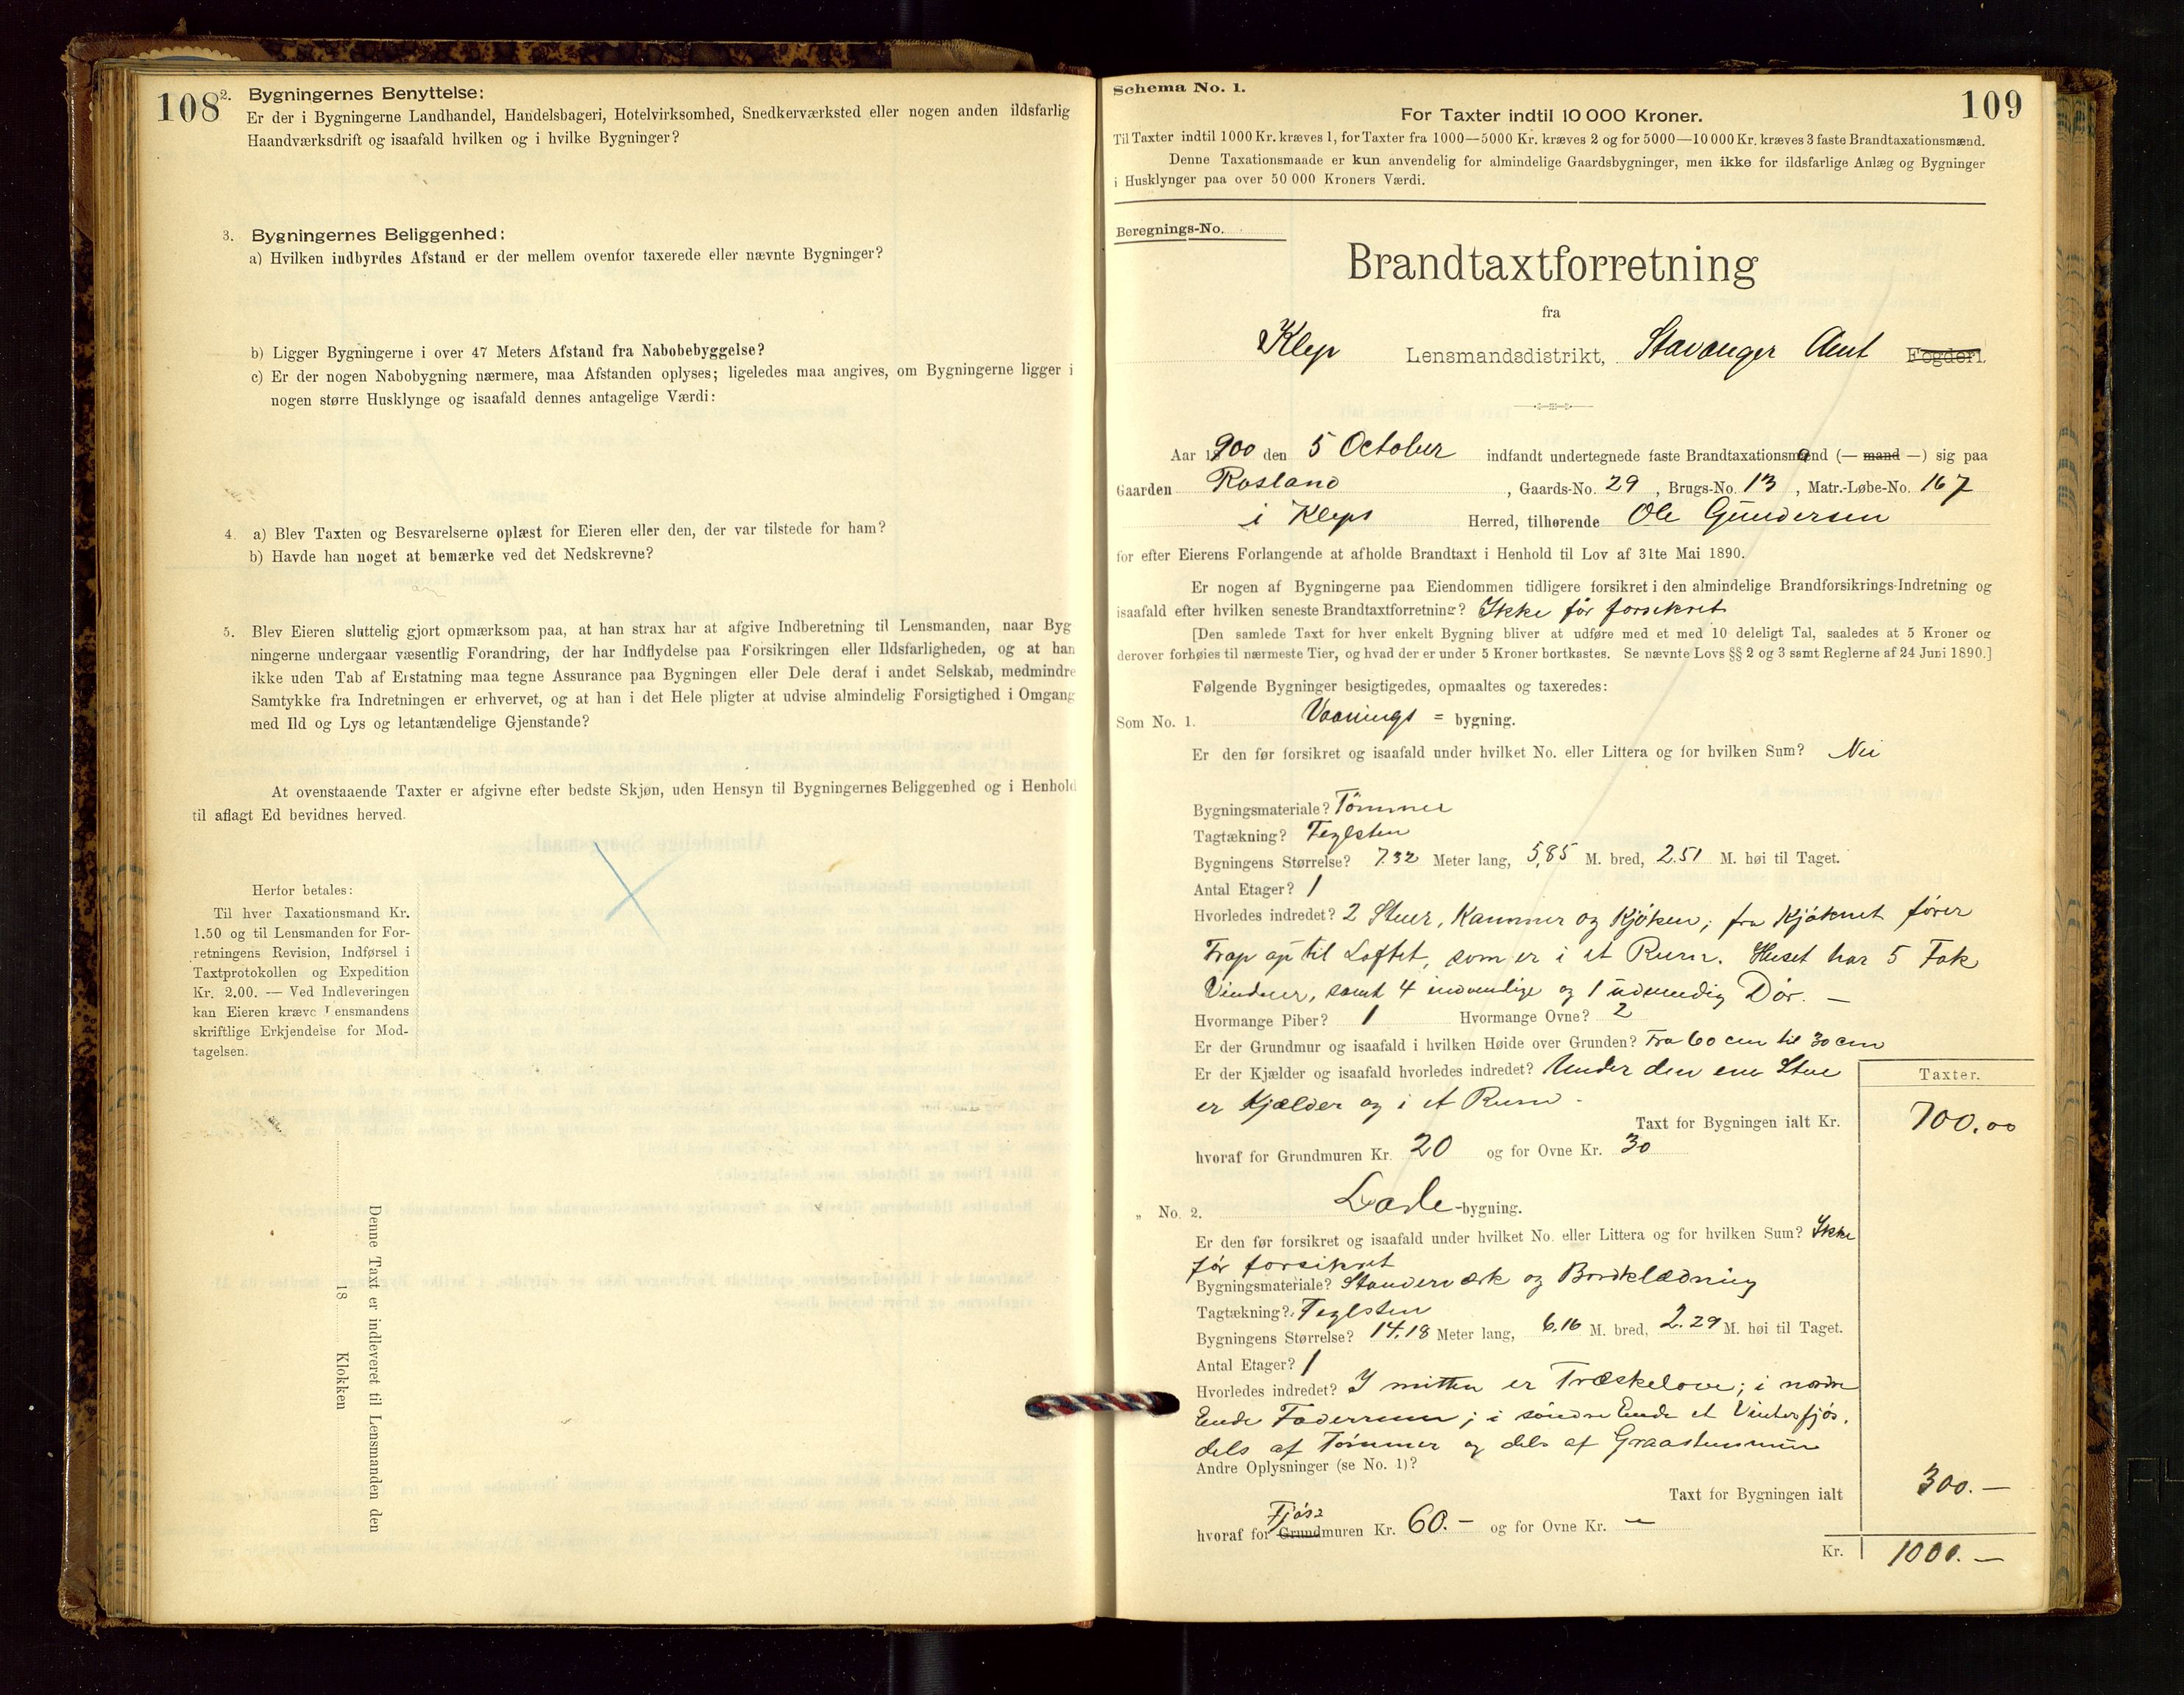 108
2. Bygningernes Benyttelse:
Er der i Bygningerne Landhandel, Handelsbageri, Hotelvirksomhed, Snedkerværksted eller nogen anden ildsfarlig
Haandværksdrift og isaafald hvilken og i hvilke Bygninger?
3. Bygningernes Beliggenhed:
a) Hvilken indbyrdes Afstand er der mellem ovenfor taxerede eller nævnte Bygninger?
b) Ligger Bygningerne i over 47 Meters Afstand fra Nabobebyggelse?
c) Er der nogen Nabobygning nærmere, maa Afstanden oplyses; ligeledes maa angives, om Bygningerne ligger i
nogen større Husklynge og isaafald dennes antagelige Værdi:
4. a) Blev Taxten og Besvarelserne oplæst for Eieren eller den, der var tilstede for ham?
b) Havde han noget at bemærke ved det Nedskrevne?
5. Blev Eieren sluttelig gjort opmærksom paa, at han strax har at afgive Indberetning til Lensmanden, naar Byg-
ningerne undergaar væsentlig Forandring, der har Indflydelse paa Forsikringen eller Ildsfarligheden, og at han
ikke uden Tab af Erstatning maa tegne Assurance paa Bygningen eller Dele deraf i andet Selskab, medmindre
Samtykke fra Indretningen er erhvervet, og at han i det Hele pligter at udvise almindelig Forsigtighed i Omgang
med Ild og Lys og letantændelige Gjenstande?
At ovenstaaende Taxter er afgivne efter bedste Skjøn, uden Hensyn til Bygningernes Beliggenhed og i Henhold
til aflagt Ed bevidnes herved.
Herfor betales:
Til hver Taxationsmand Kr.
1.50 og til Lensmanden for For-
retningens Revision, Indførsel i
Taxtprotokollen og Expedition
Kr. 2.00. — Ved Indleveringen
kan Eieren kræve Lensmandens
skriftlige Erkjendelse for Mod-
tagelsen.
Denne Taxt er indleveret til Lensmanden den
18 Klokken
Schema No. 1.
109
For Taxter indtil 10 000 Kroner.
Til Taxter indtil 1000 Kr. kræves 1, for Taxter fra 1000—5000 Kr. kræves 2 og for 5000—10 000 Kr. kræves 3 faste Brandtaxationsmænd.
Denne Taxationsmaade er kun anvendelig for almindelige Gaardsbygninger, men ikke for ildsfarlige Anlæg og Bygninger
i Husklynger paa over 50 000 Kroners Værdi.
Beregnings-No.
Brandtaxtforretning
fra
Klep Lensmandsdistrikt, Stavanger Amt Fogderi.
Aar 1900 den 5 October indfandt undertegnede faste Brandtaxationsmænd (— mand —) sig paa
Gaarden Rosland, Gaards-No. 29, Brugs-No. 13, Matr.-Løbe-No. 167
i Klep Herred, tilhørende Ole Gundersen
for efter Eierens Forlangende at afholde Brandtaxt i Henhold til Lov af 31te Mai 1890.
Er nogen af Bygningerne paa Eiendommen tidligere forsikret i den almindelige Brandforsikrings-Indretning og
isaafald efter hvilken seneste Brandtaxtforretning? Ikke før forsikret
[Den samlede Taxt for hver enkelt Bygning bliver at udføre med et med 10 deleligt Tal, saaledes at 5 Kroner og
derover forhøies til nærmeste Tier, og hvad der er under 5 Kroner bortkastes. Se nævnte Lovs §§ 2 og 3 samt Reglerne af 24 Juni 1890.]
Følgende Bygninger besigtigedes, opmaaltes og taxeredes:
Som No. 1. Vaanings = bygning.
Er den før forsikret og isaafald under hvilket No. eller Littera og for hvilken Sum? Nei
Bygningsmateriale? Tømmer
Tagtækning? Teglsten
Bygningens Størrelse? 7.32 Meter lang, 5,85 M. bred, 2.51 M. høi til Taget.
Antal Etager? 1
Hvorledes indredet? 2 Stuer, Kammer og Kjøken; fra Kjøknet fører
Trap op til Loftet, som er i et Rum. Huset har 5 Fak
Vinduer, samt 4 indvendige og 1 udvendig Dør. —
Hvormange Piber? 1 Hvormange Ovne? 2
Er der Grundmur og isaafald i hvilken Høide over Grunden? Fra 60 cm til 30 cm
Er der Kjælder og isaafald hvorledes indredet? Under den ene Stue
er Kjælder og i et Rum -
Taxter.
Taxt for Bygningen ialt Kr. 700.00
hvoraf for Grundmuren Kr. 20 og for Ovne Kr. 30
„ No. 2. Lade-bygning.
Er den før forsikret og isaafald under hvilket No. eller Littera og for hvilken Sum? Ikke
før forsikret
Bygningsmateriale? Standerværk og Bordklædning
Tagtækning? Teglsten
Bygningens Størrelse? 14.18 Meter lang, 6.16 M. bred, 2.29 M. høi til Taget.
Antal Etager? 1
Hvorledes indredet? I mitten er Træskelove; i nordre
Ende Foderrum; i søndre Ende et Vinterfjøs,
dels af Tømmer og dels af Graastensmur
Andre Oplysninger (se No. 1)?
Taxt for Bygningen ialt 300.—
Fjøs
hvoraf for Grundmuren Kr. 60.- og for Ovne Kr. —
Kr. 1000.—